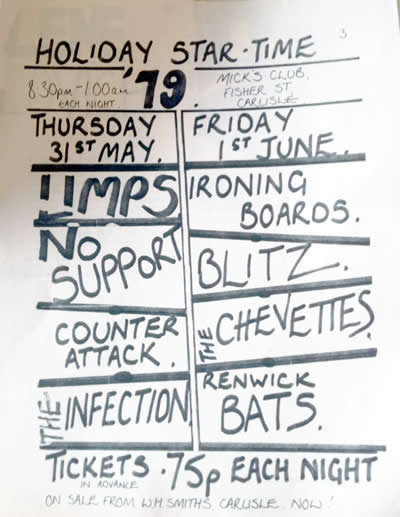 3
HOLIDAY STAR·TIME
'79.
8·30pm - 1·00am
EACH NIGHT.
MICK'S CLUB,
FISHER ST,
CARLISLE
THURSDAY
31ST MAY.
LIMPS
NO
SUPPORT
COUNTER
ATTACK.
THE INFECTION
FRIDAY
1ST JUNE.
IRONING
BOARDS.
BLITZ.
THE CHEVETTES.
RENWICK
BATS.
TICKETS · 75p EACH NIGHT
IN ADVANCE
ON SALE FROM W.H. SMITHS, CARLISLE NOW!